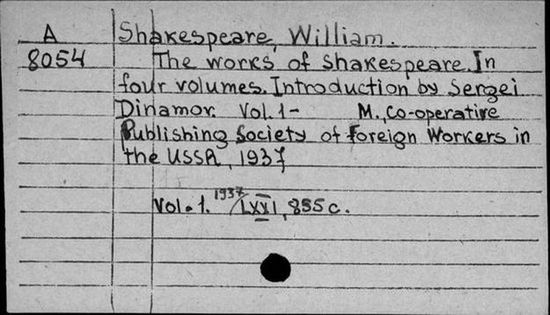 A Shakespeare, William.
8054 The works of Shakespeare. In
four volumes. Introduction by Sergei
Dinamov. Vol. 1- M., Co-operative
Publishing Society of Foreign Workers in
the USSR, 1937
Vol. 1. 1937/LXXI, 855 c.